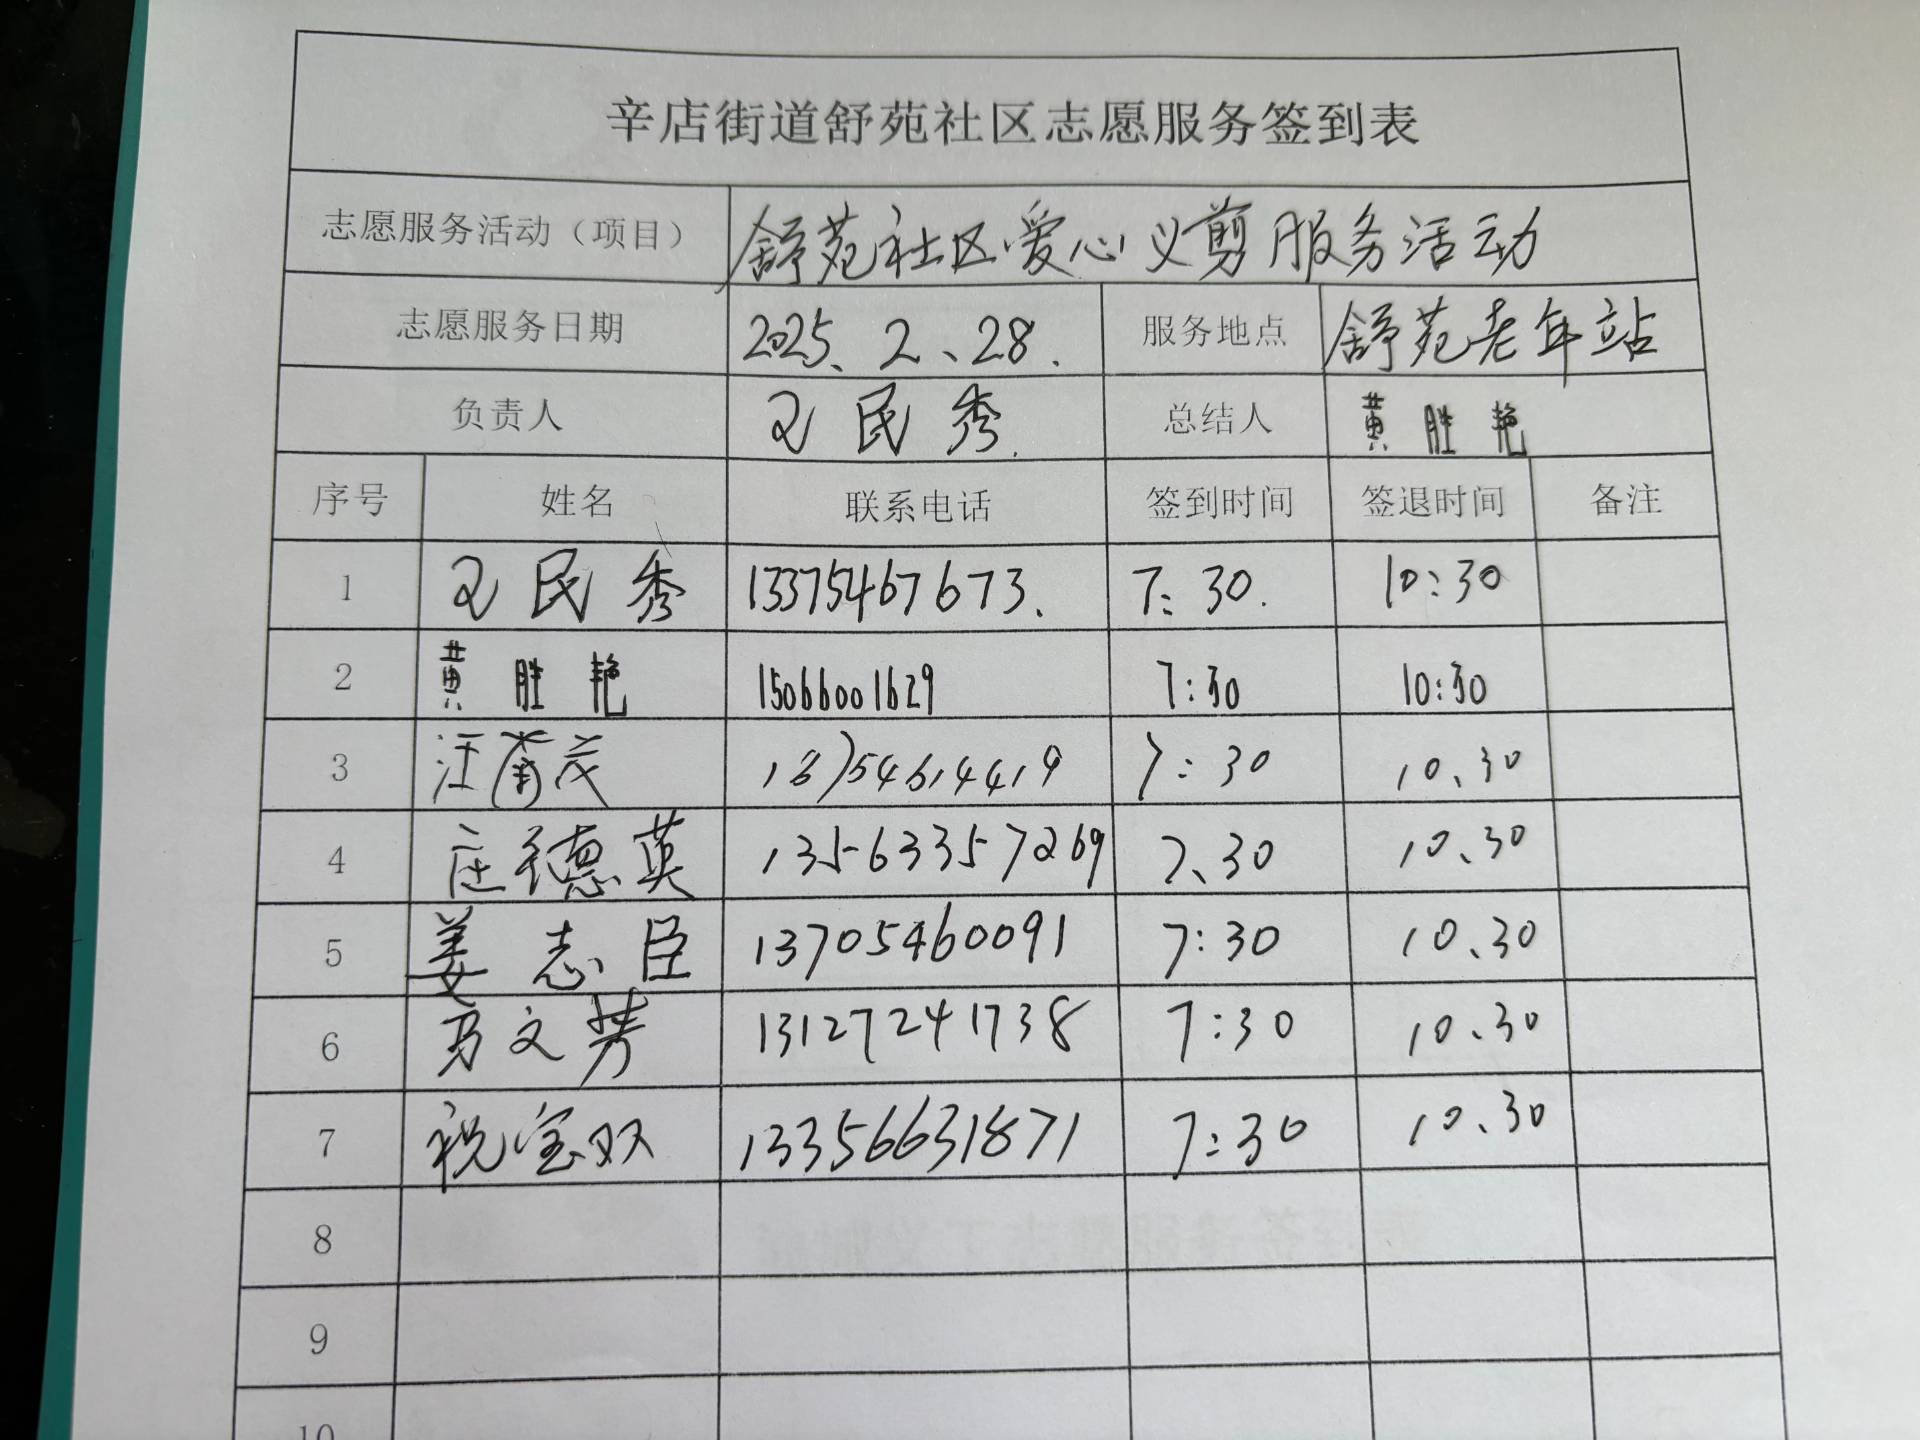 辛店街道舒苑社区志愿服务签到表
志愿服务活动（项目） 舒苑社区爱心义剪服务活动
志愿服务日期 2025、2、28. 服务地点 舒苑老年站
负责人 王民秀. 总结人 黄胜艳
序号 姓名 联系电话 签到时间 签退时间 备注
1 王民秀 13375467673. 7:30. 10:30
2 黄胜艳 15066001629 7:30 10:30
3 汪菊茂 18754614419 7:30 10、30
4 庄德英 13563357269 7、30 10、30
5 姜志臣 13705460091 7:30 10、30
6 马文芳 13127241738 7:30 10、30
7 祝宝双 13356631871 7:30 10、30
8
9
10